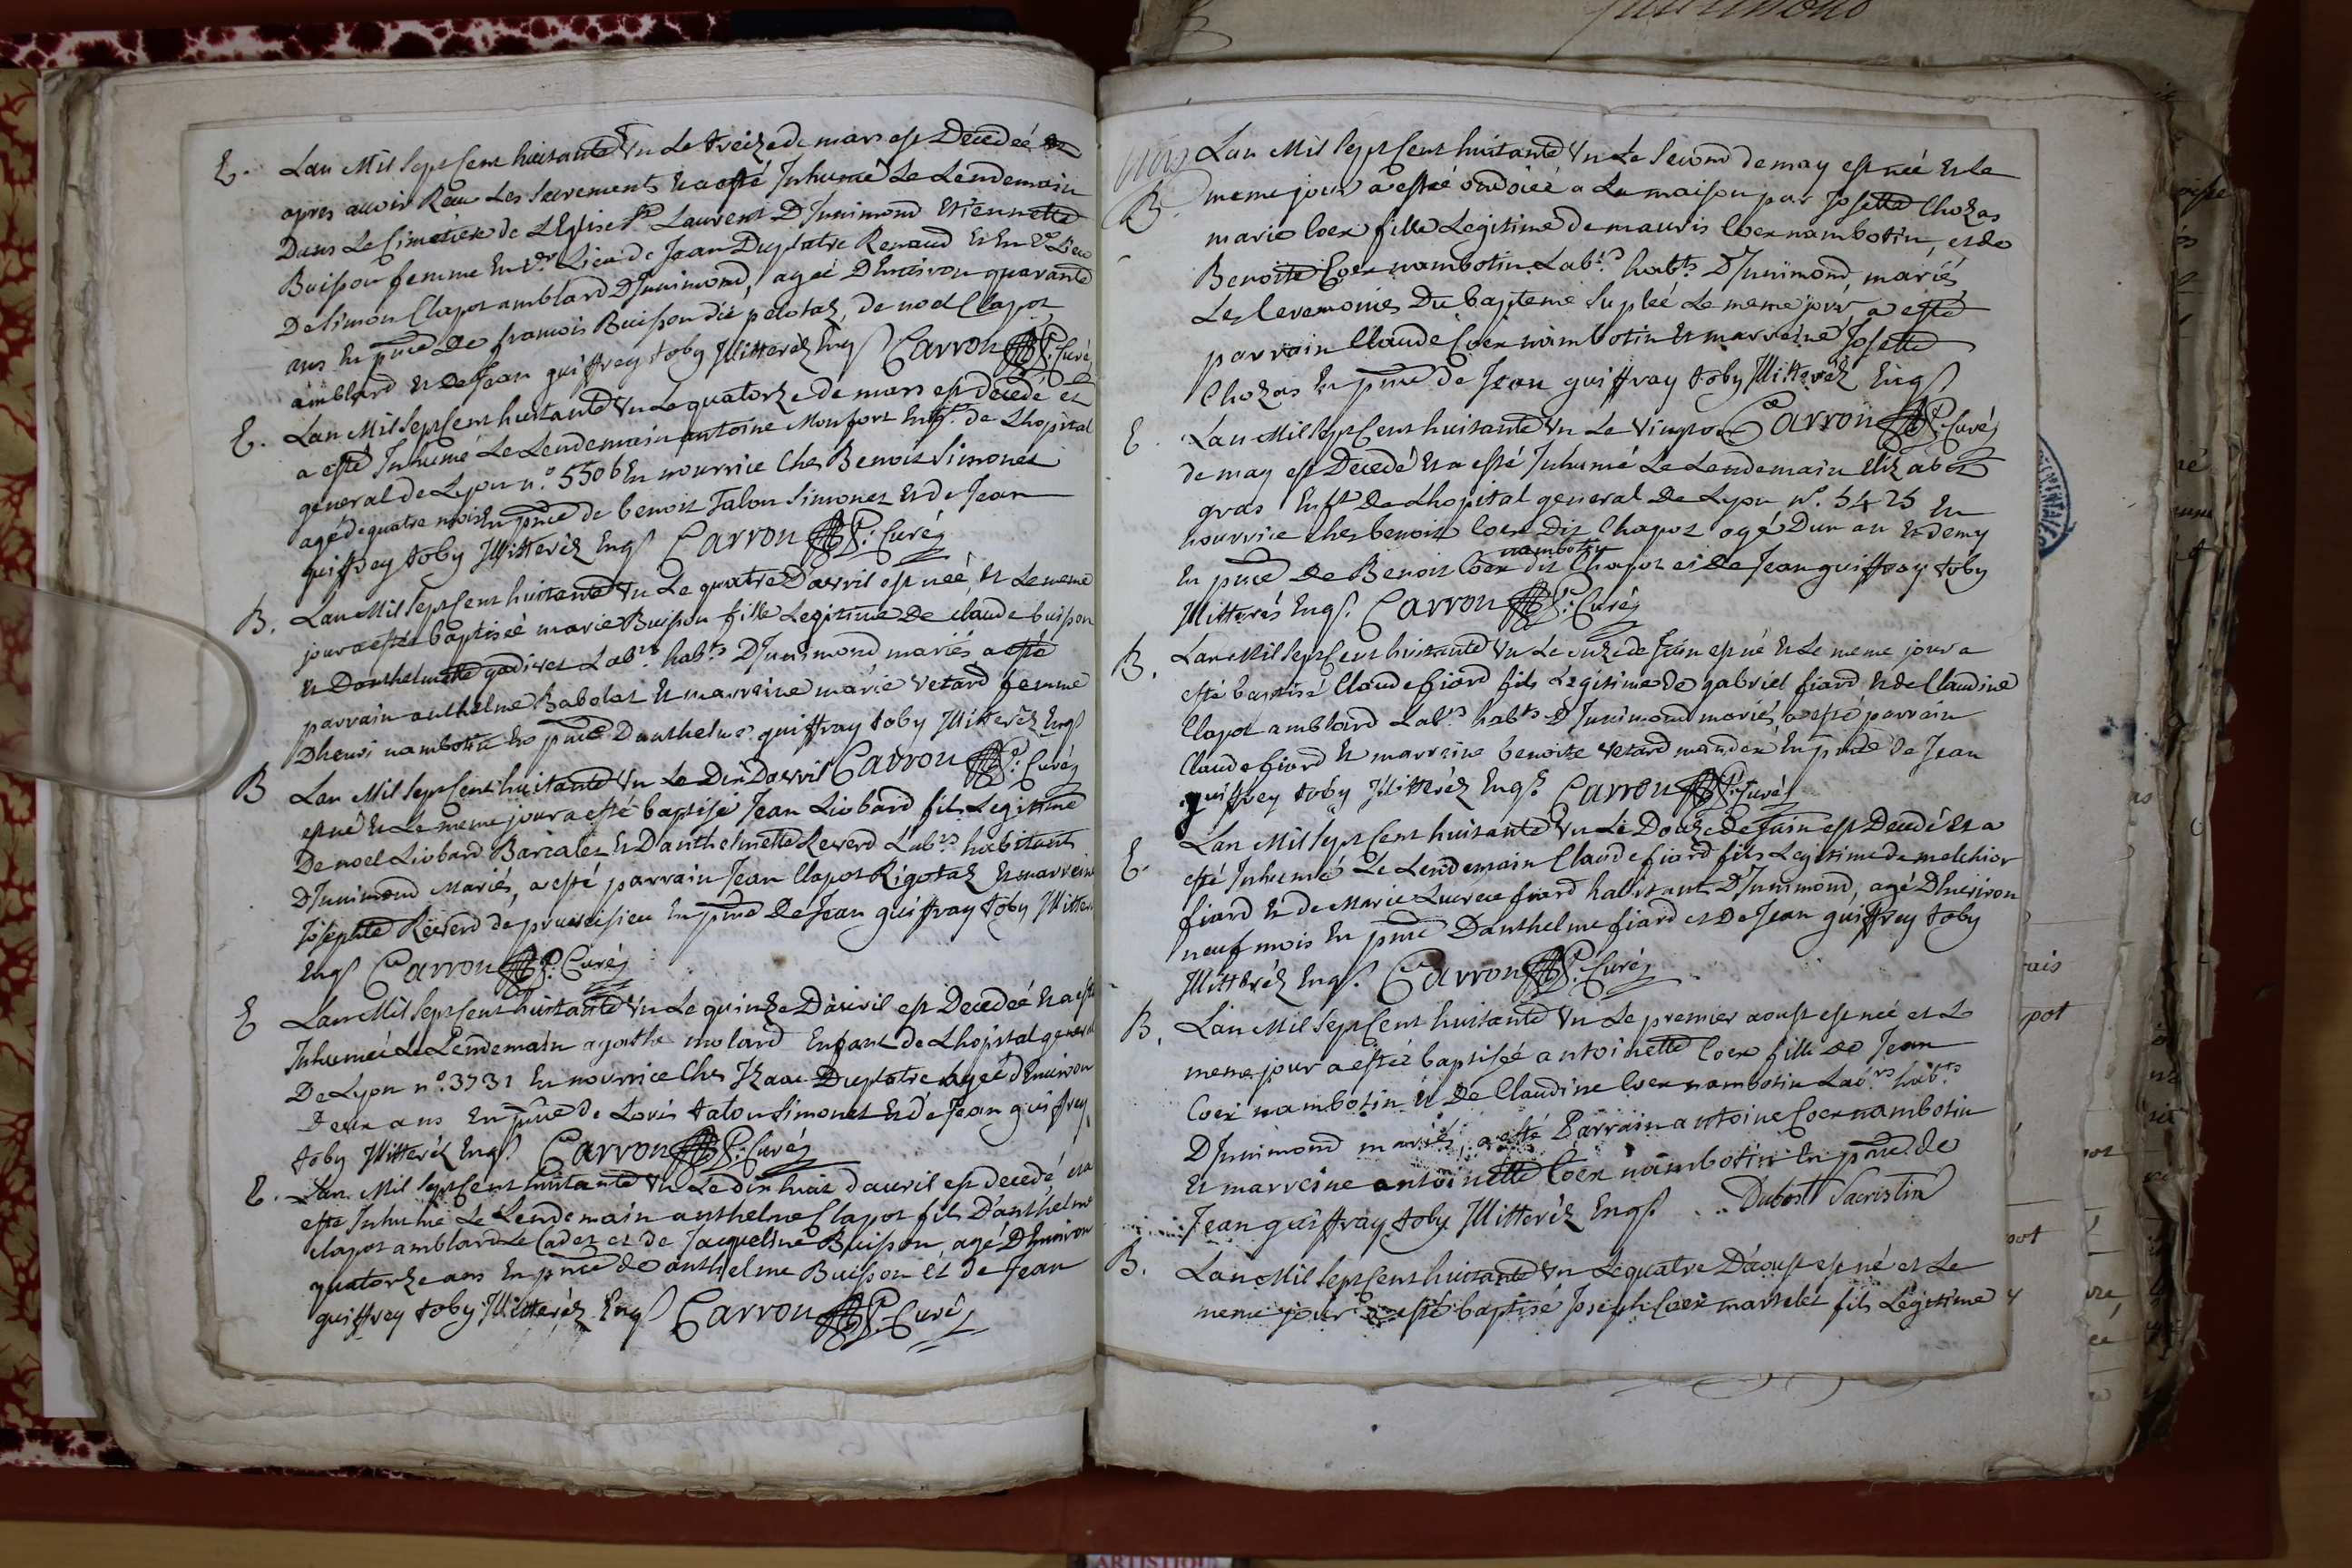 E. Lan Mil Sept Cent huitante Un Le treize de mars est Decedeé et
apres avoir Recu Les Sacrements Et a esté Inhumeé Le Lendemain
Dans Le Cimetiere de L'Eglise St Laurent D'Innimond Etiennette
Buisson femme En 1er Lieu de Jean Duplatre Renaud Et En 2d Lieu
De Simon Clapot amblard D'Innimond, ageé D'Environ quarante
ans En pnce De francois Buisson dit pelotaz, de noel Clapot
amblard et de Jean guiffrey toby Illitteréz Enqs Carron Curé
E. Lan Mil Sept Cent huitante Un Le quatorze de mars est decedé et
a esté Inhumé Le Lendemain antoine Monfort Enft de Lhopital
general de Lyon n.° 5506 En nourrice Ches Benoit Simonet
agé de quatre mois En pnce de benoit Talon Simonet Et de Jean
guiffrey toby Illitteréz Enqs Carron Curé
B. Lan Mil Sept Cent huitante Un Le quatre D'avril est neé Et Le meme
jour a estée baptiseé marie Buisson fille Legitime De claude buisson
et Danthelmette godivet Labrs habts D'Innimond mariés a esté
parrain anthelme Babolat Et marreine marie vetard femme
Dhenri nambotin En pnce Danthelme guiffray toby Illitteréz Enqs
Carron Curé
B Lan Mil Sept Cent huitante Un Le Dix D'avril
est né Et Le meme jour a esté baptisé Jean Liobard fils Legitime
De noel Liobard Barcalet Et Danthelmette Reverd Labrs habitants
D'Innimond Mariés, a esté parrain Jean Clapot Rigotaz Et marreine
Josephte Reverd de En pnce De Jean guiffray toby
Enqs Carron Curé
E Lan Mil Sept Cent huitante Un Le quinze D'avril est Decedeé Et a esté
Inhumeé Le Lendemain agathe molard Enfant de Lhopital general
De Lyon n.° 3731 En nourrice Ches Izaac Duplatre ageé d'Environ
Deux ans En pnce de Lovis talon Simonet Et de Jean guiffrey
toby Illitteréz Enqs Carron Curé
E. Lan Mil Sept Cent huitante Un Le dix huit d'avril est decedé et a
esté Inhumé Le Lendemain anthelme Clapot fils D'anthelme
Clapot amblard Le Cadet et de Jacqueline Buisson, agé D'Environ
quatorze ans En pnce de anthelme Buisson Et de Jean
guiffrey toby Illitteréz Enqs Carron Curé
Lan Mil Sept Cent huitante Un Le Second de may est neé Et Le
B. meme jour a estée ondoieé a La maison par Josette Chozas
marie Coex fille Legitime de mauris Coex nambotin, et de
Benoitte Coex nambotin Labrs habts D'Innimond, mariés
Les Ceremonies Du bapteme Supleé Le meme jour, a esté
parrain Claude Coex nambotin Et marreine Josette
Chozas En pnce de Jean guiffray toby Illitteréz Enqs
Carron Curé
E. Lan Mil Sept Cent huitante Un Le
de may est Decedé Et a esté Inhumé Le Lendemain Elizabet
gras Enft De Lhopital general De Lyon n.° 5425 En
nourrice ches benoit Coex Dit Chapot agé Dun an Et demy
En pnce De Benoit Coex nambotin dit Chapot et De Jean guiffray toby
Illitterés Enqs. Carron Curé
B. Lan Mil Sept Cent huitante Un Le onze de Juin est né Et Le meme jour a
esté baptisé Claude fiard fils Légitime de gabriel fiard Et de Claudine
Clapot amblard Labrs habts D'Innimond mariés, a esté parrain
Claude fiard Et marreine benoite vetard En pnce de Jean
guiffrey toby Illitteréz Enqs. Carron Curé
E. Lan Mil Sept Cent huitante Un Le Douze De Juin est Decedé Et a
esté Inhumé Le Lendemain Claude fiard fils Legitime de melchior
fiard Et de Marie Lucrece fiard habitants D'Innimond, agé D'Environ
neuf mois En pnce D'anthelme fiard et De Jean guiffrey toby
Illitteréz Enqs. Carron Curé
B. Lan Mil Sept Cent huitante Un Le premier aoust est neé et Le
meme jour a estée baptiseé antoinette Coex fille de Jean
Coex nambotin Et De Claudine Coex nambotin Labrs habts
D'Innimond mariés, a esté Parrain antoine Coex nambotin
Et marreine antoinette Coex nambotin En pnce de
Jean guiffray toby Illitteréz Enqs. Dubost Sacristin
B. Lan Mil Sept Cent huitante Un Le quatre D'aoust est né et Le
meme jour a esté baptisé Joseph Coex martelet fils Légitime